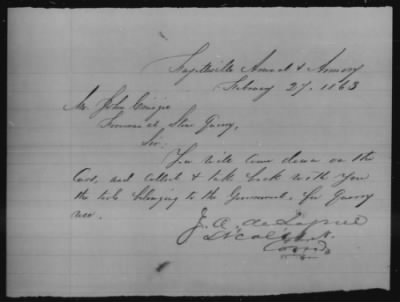 Fayetteville Arsenal & Armory
February 27. 1863
Mr John
Foreman at Stone Quarry,
Sir:
You will come down on the
Cars, and collect & take back with you
the tools belonging to the Government, for Quarry
use.
J. A. de Lagnel
Lt Col & A.
Comd.